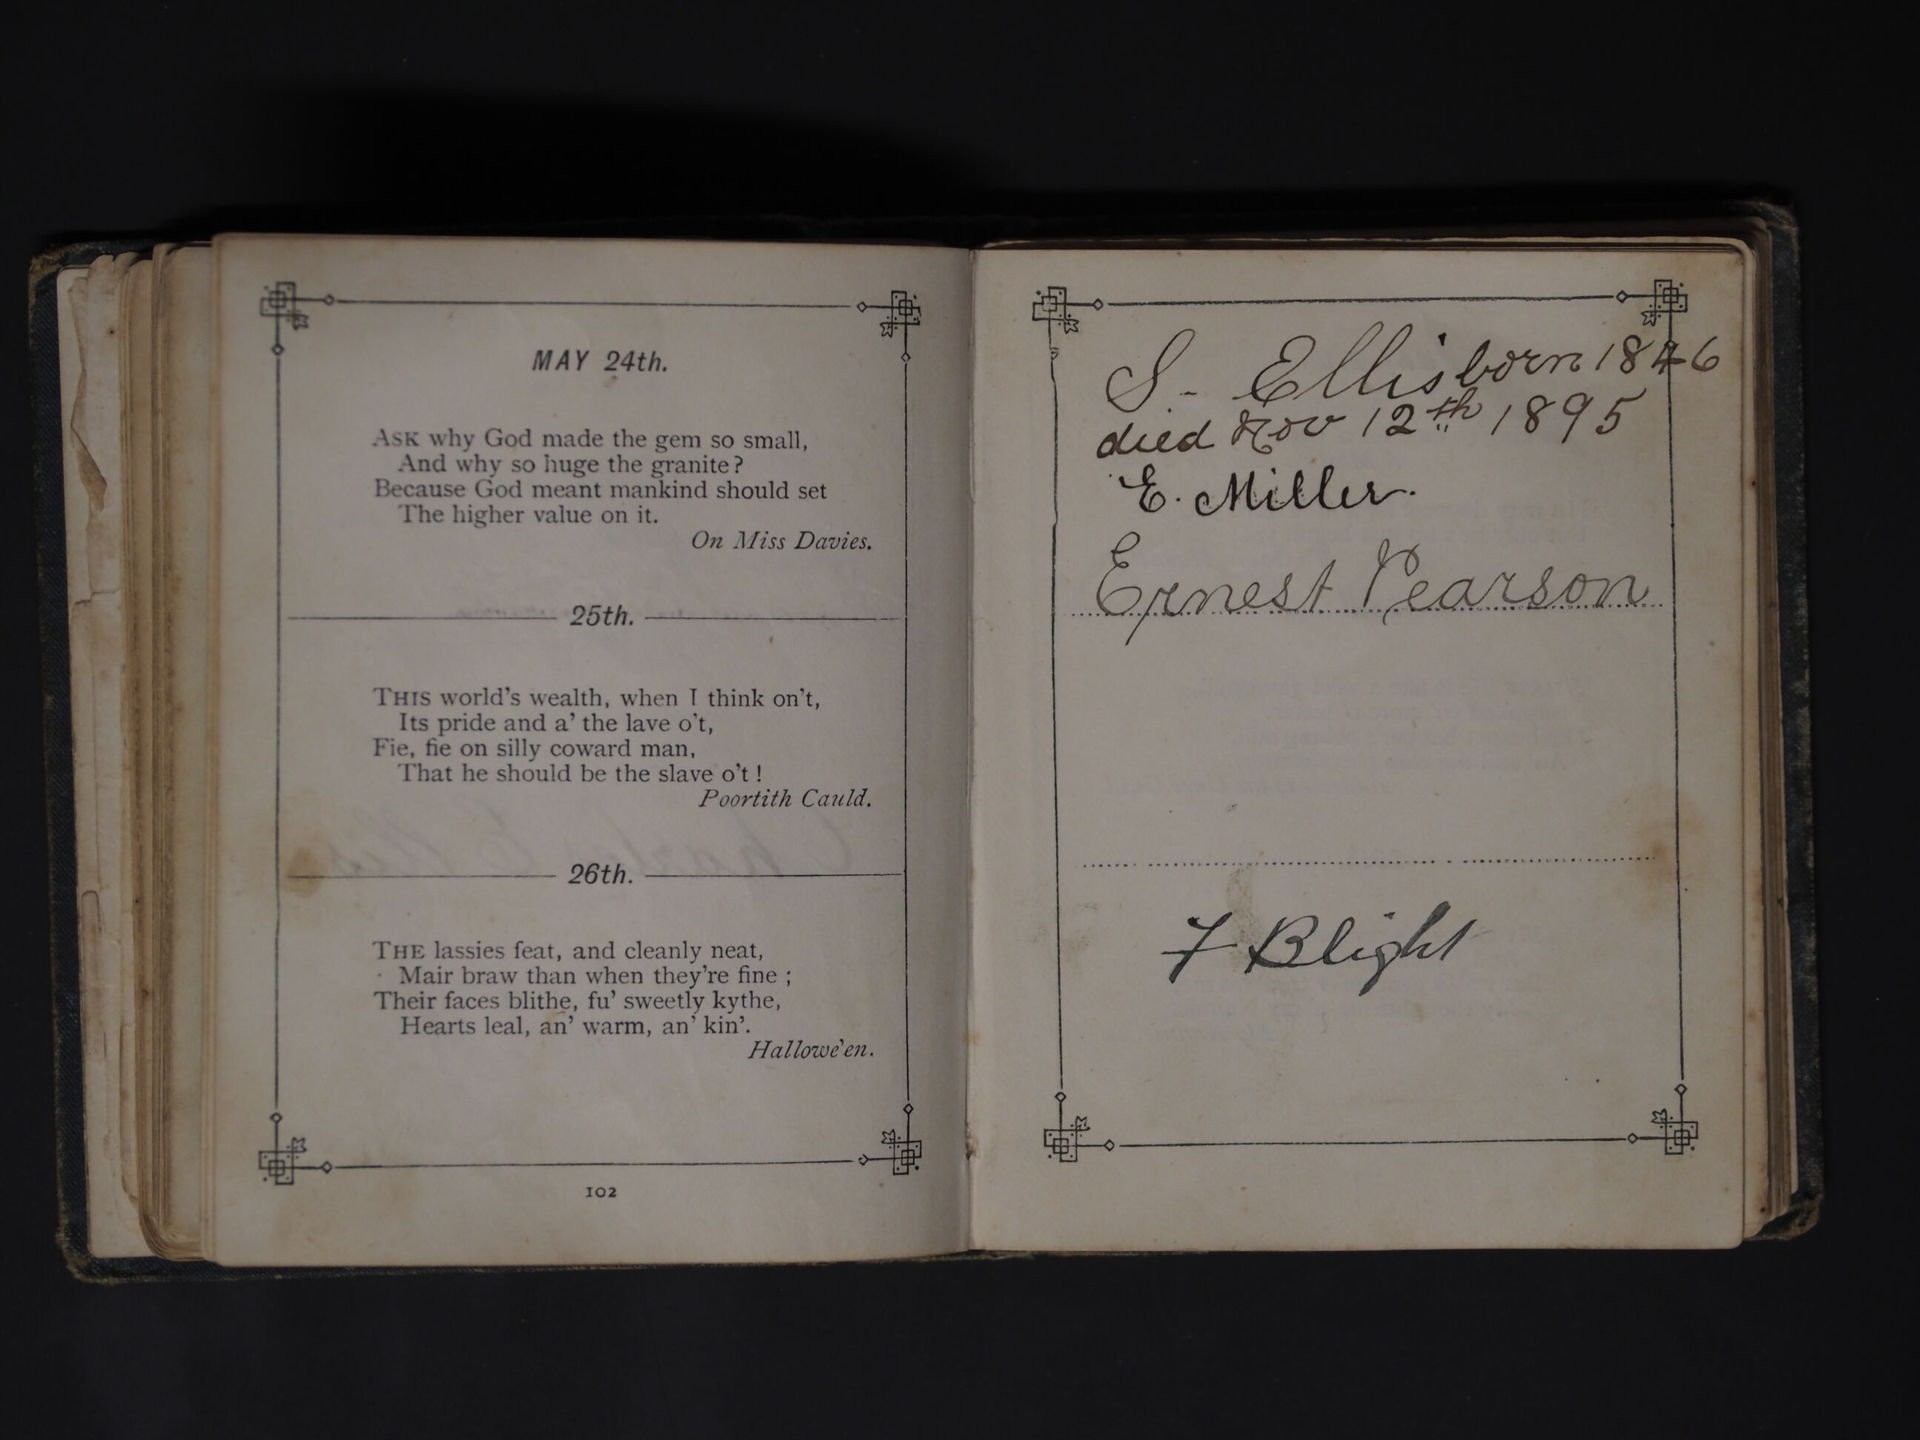 MAY 24th.
ASK why God made the gem so small,
And why so huge the granite?
Because God meant mankind should set
The higher value on it.
On Miss Davies.
25th.
THIS world's wealth, when I think on't,
Its pride and a' the lave o't,
Fie, fie on silly coward man,
That he should be the slave o't!
Poortith Cauld.
26th.
THE lassies feat, and cleanly neat,
Mair braw than when they're fine;
Their faces blithe, fu' sweetly kythe,
Hearts leal, an' warm, an' kin'.
Hallowe'en.
102
S. Ellis born 1846
died Nov 12th 1895
E. Miller.
Ernest Pearson
F Blight